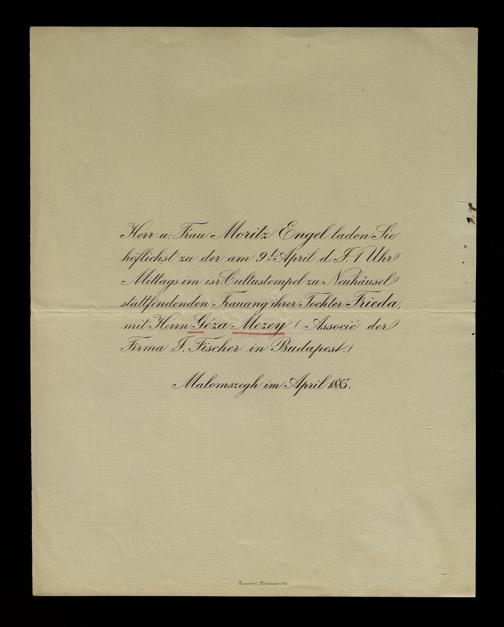 Herr u. Frau Moritz Engel laden Sie
höflichst zu der am 9ten April d. J. 1 Uhr
Mittags im isr. Cultustempel zu Neuhäusel
stattfindenden Trauung ihrer Tochter Frieda,
mit Herrn Géza Mezey (Associé der
Firma I. Fischer in Budapest.)
Malomszegh im April 1885.